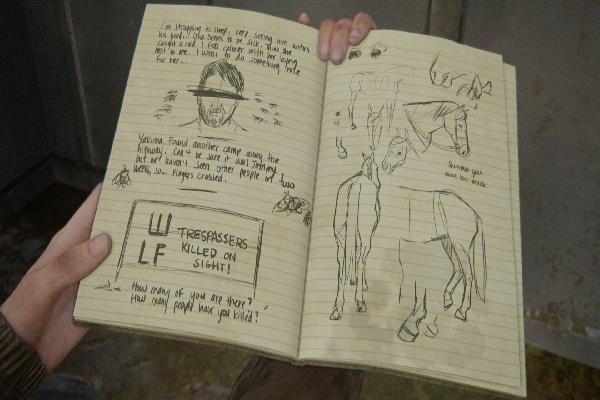 I'm struggling to sleep. Keep seeing him within
his blood... Dina seems to be sick. Think she
caught a cold. I feel calmer with her laying
next to me. I want to do something nice
for her...
Yakima. Found another camp along the
highway. Can't be sure it was Tommy
but we haven't seen other people in two
weeks, so... Fingers crossed.
W
LF
TRESPASSERS
KILLED ON
SIGHT!
How many of you are there?
How many people have you killed?
Shimmer
must be